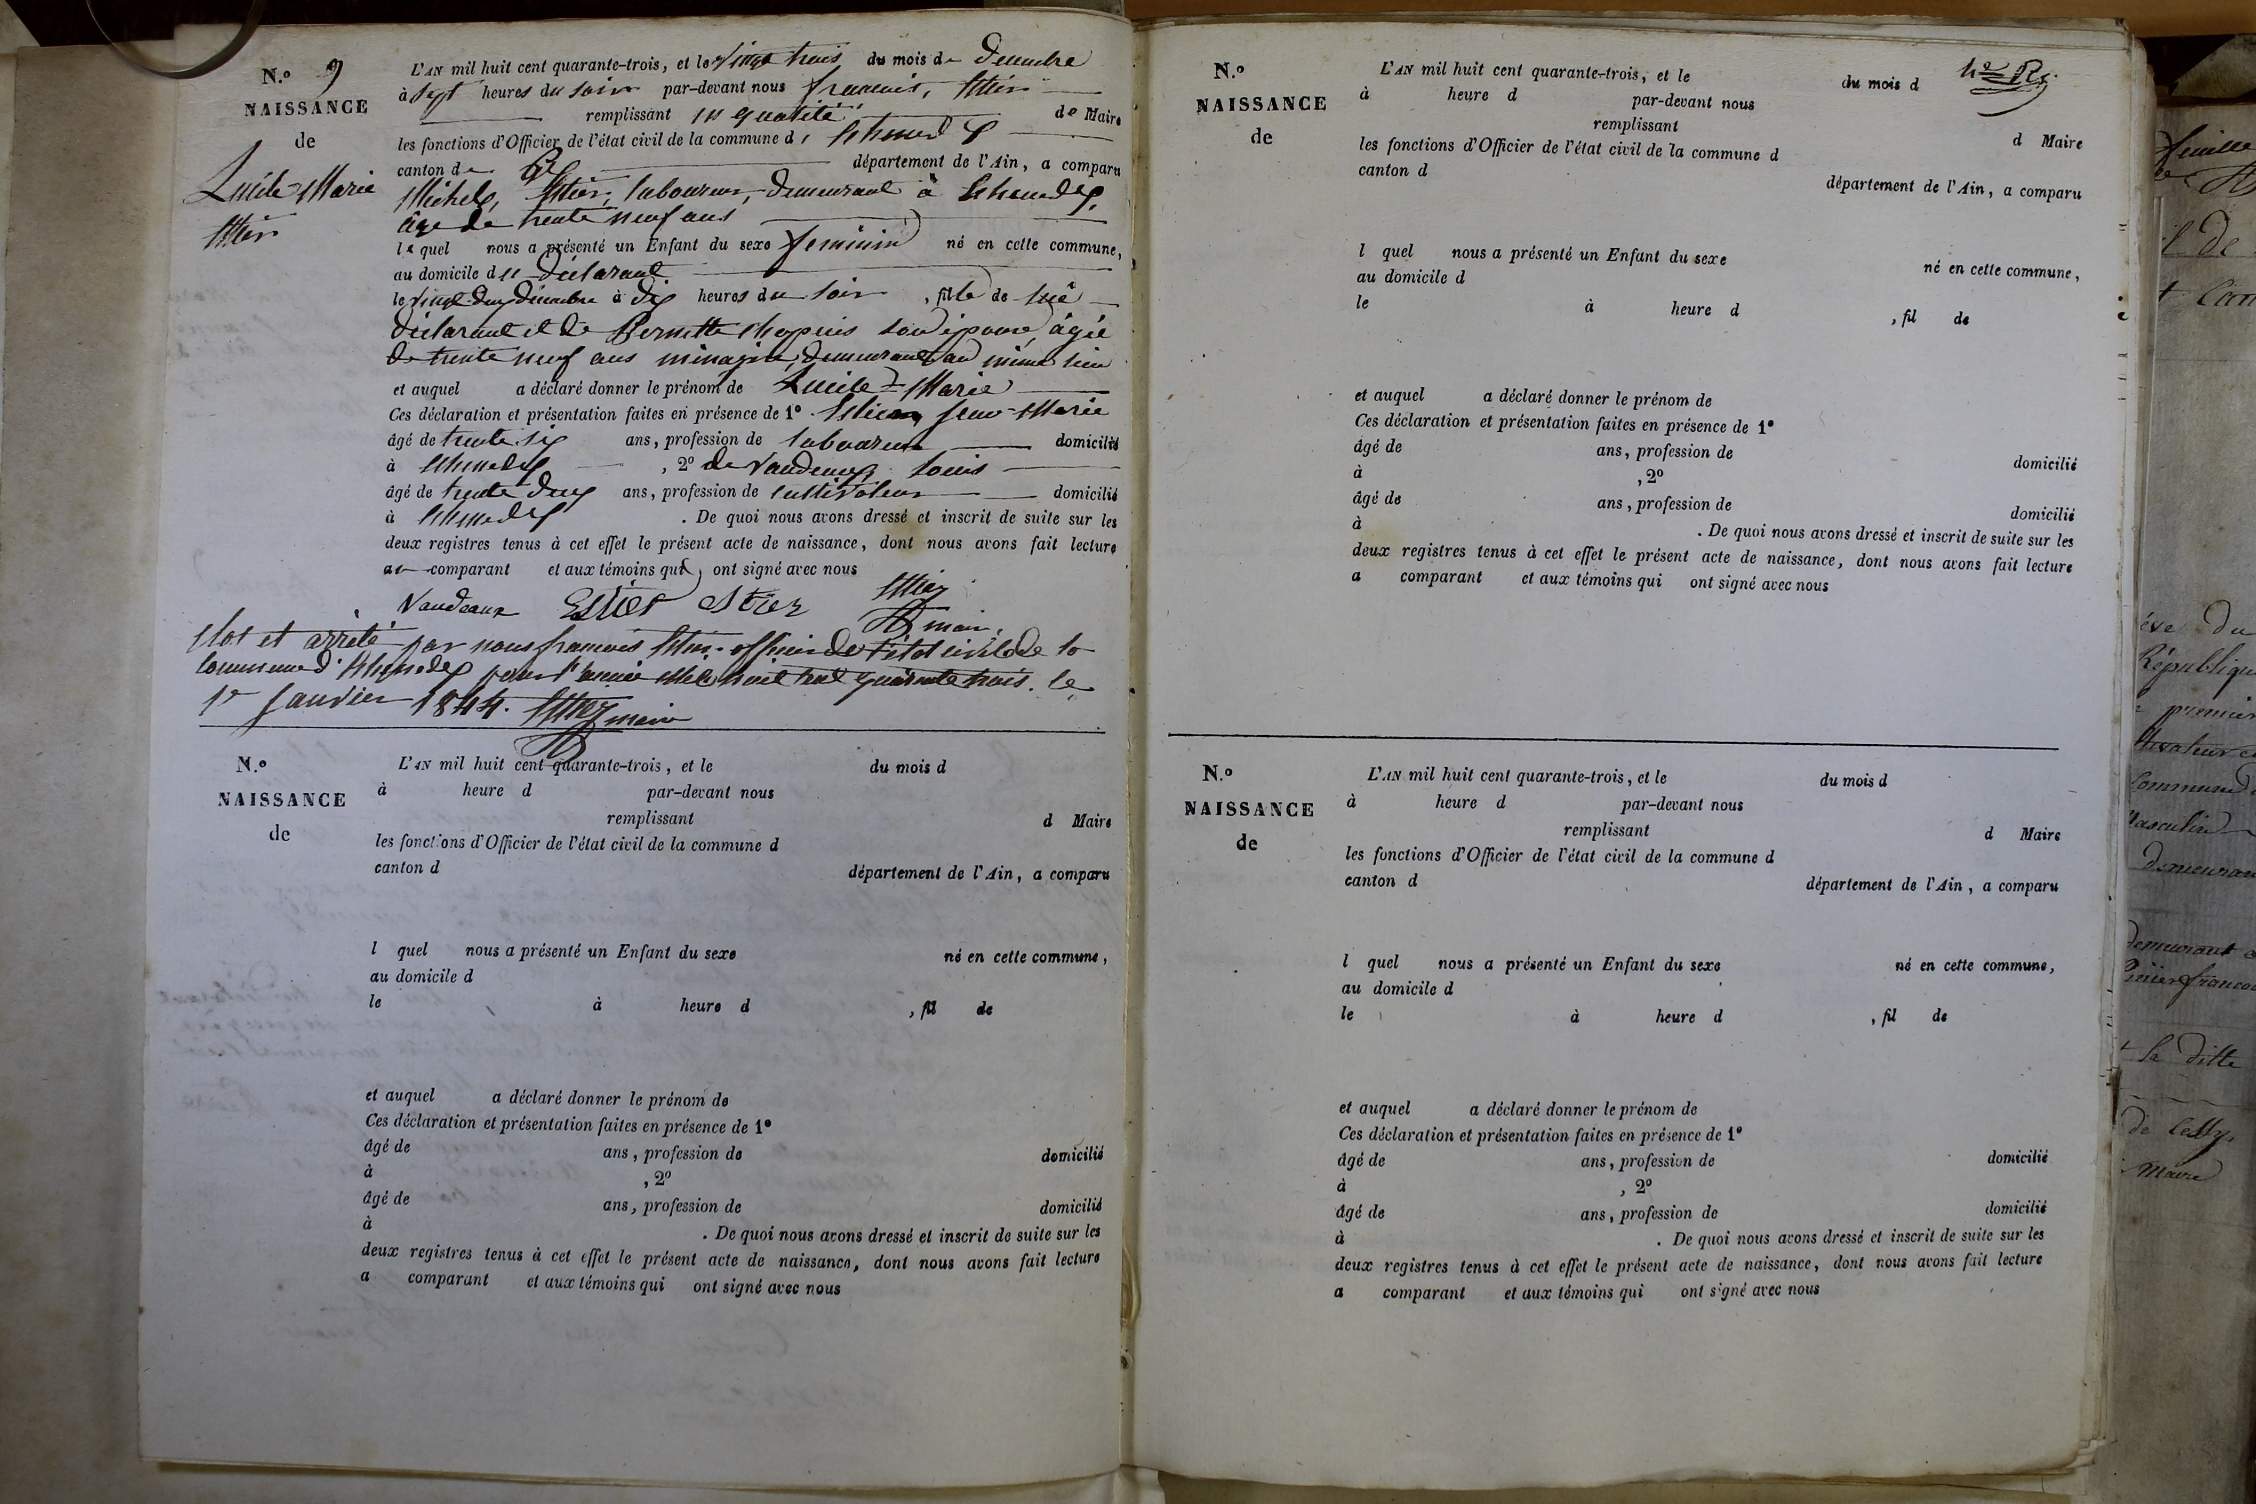 N.º 9
NAISSANCE
de
Lucile-Marie
L'AN mil huit cent quarante-trois, et le vingt trois du mois de Decembre
à Sept heures du soir par-devant nous francois,
remplissant en qualité de Maire
les fonctions d'Officier de l'état civil de la commune d'
canton de département de l'Ain, a comparu
Michel, laboureur, demeurant à
âgé de trente neuf ans
lequel nous a présenté un Enfant du sexe feminin né en cette commune,
au domicile du déclarant
le vingt deux décembre à dix heures du soir, fille de
déclarant et de Pernette Chapuis son épouse, âgée
de trente neuf ans ménagère, demeurant au même lieu
et auquel a déclaré donner le prénom de Lucile-Marie
Ces déclaration et présentation faites en présence de 1º Jean-Marie
âgé de trente six ans, profession de laboureur domicilié
à , 2º de Vaudeaux Louis
âgé de trente deux ans, profession de cultivateur domicilié
à . De quoi nous avons dressé et inscrit de suite sur les
deux registres tenus à cet effet le présent acte de naissance, dont nous avons fait lecture
au comparant et aux témoins qui ont signé avec nous
Vaudeaux
maire
Clos et arrêté par nous francois officier de l'état civil de la
commune d' pour l'année mil huit cent quarante trois. le
1er Janvier 1844. maire
N.º
NAISSANCE
de
L'AN mil huit cent quarante-trois, et le du mois d
à heure d par-devant nous
remplissant d Maire
les fonctions d'Officier de l'état civil de la commune d
canton d département de l'Ain, a comparu
l quel nous a présenté un Enfant du sexe né en cette commune,
au domicile d
le à heure d , fil de
et auquel a déclaré donner le prénom de
Ces déclaration et présentation faites en présence de 1º
âgé de ans, profession de domicilié
à , 2º
âgé de ans, profession de domicilié
à . De quoi nous avons dressé et inscrit de suite sur les
deux registres tenus à cet effet le présent acte de naissance, dont nous avons fait lecture
a comparant et aux témoins qui ont signé avec nous
N.º
NAISSANCE
de
L'AN mil huit cent quarante-trois, et le du mois d
à heure d par-devant nous
remplissant d Maire
les fonctions d'Officier de l'état civil de la commune d
canton d département de l'Ain, a comparu
l quel nous a présenté un Enfant du sexe né en cette commune,
au domicile d
le à heure d , fil de
et auquel a déclaré donner le prénom de
Ces déclaration et présentation faites en présence de 1º
âgé de ans, profession de domicilié
à , 2º
âgé de ans, profession de domicilié
à . De quoi nous avons dressé et inscrit de suite sur les
deux registres tenus à cet effet le présent acte de naissance, dont nous avons fait lecture
a comparant et aux témoins qui ont signé avec nous
N.º
NAISSANCE
de
L'AN mil huit cent quarante-trois, et le du mois d
à heure d par-devant nous
remplissant d Maire
les fonctions d'Officier de l'état civil de la commune d
canton d département de l'Ain, a comparu
l quel nous a présenté un Enfant du sexe né en cette commune,
au domicile d
le à heure d , fil de
et auquel a déclaré donner le prénom de
Ces déclaration et présentation faites en présence de 1º
âgé de ans, profession de domicilié
à , 2º
âgé de ans, profession de domicilié
à . De quoi nous avons dressé et inscrit de suite sur les
deux registres tenus à cet effet le présent acte de naissance, dont nous avons fait lecture
a comparant et aux témoins qui ont signé avec nous
feuille
du
République
premier
demeurant
la ditte
Maire